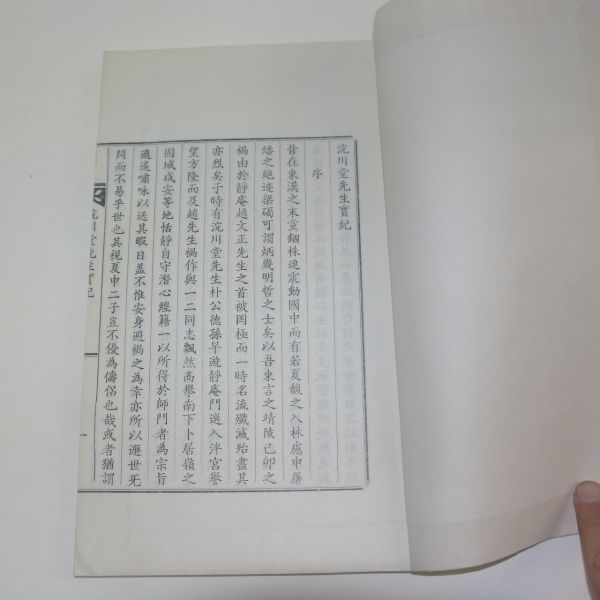 浣川堂先生實紀
序
昔在東漢之末黨錮株連震動國中而有若夏馥之入林慮申屠
蟠之絶迹梁碭可謂炳幾明哲之士矣以吾東言之靖陵己卯之
禍由於靜庵趙文正先生之首被罔極而一時名流殲滅殆盡其
亦烈矣于時有浣川堂先生朴公德孫早遊靜庵門選入泮宮譽
望方隆而及趙先生禍作與一二同志飄然高擧南下卜居嶺之
固城咸安等地恬靜自守潛心經籍一以所得於師門者為宗旨
逍遙嘯咏以送其暇日盖不惟安身避禍之為幸亦所以遯世旡
悶而不易乎世也其視夏申二子豈不優為儔侶也哉或者猶謂
浣川堂先生實紀
序
一